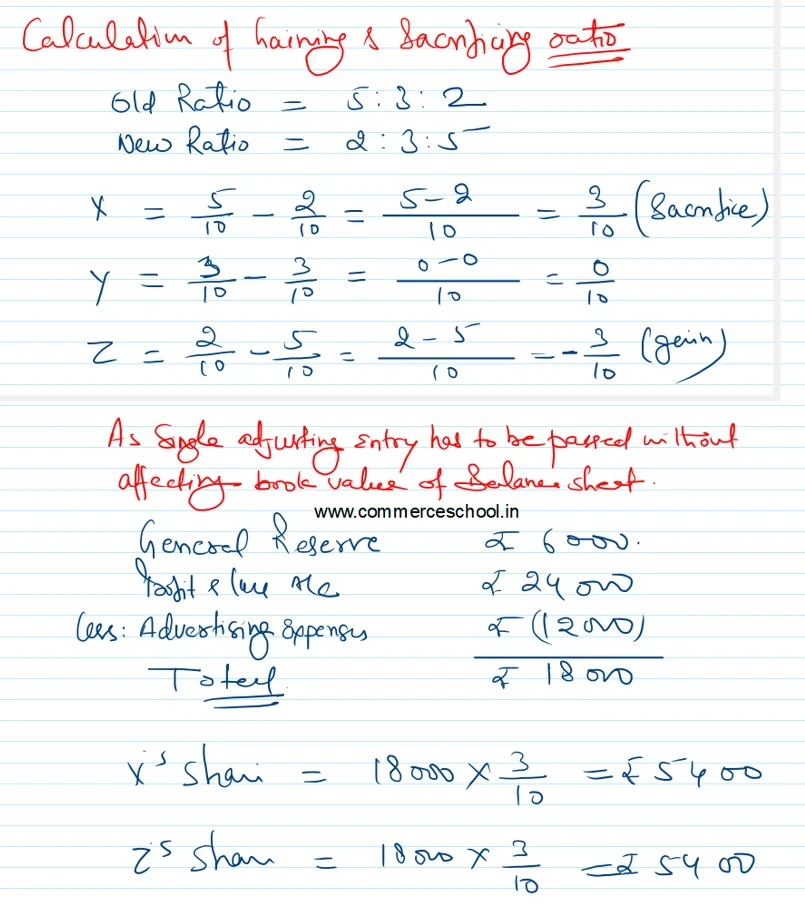 Calculation of Gaining & Sacrificing ratio
Old Ratio = 5 : 3 : 2
New Ratio = 2 : 3 : 5
X = 5/10 - 2/10 = 5-2/10 = 3/10 (Sacrifice)
Y = 3/10 - 3/10 = 0-0/10 = 0/10
Z = 2/10 - 5/10 = 2-5/10 = -3/10 (gain)
As Single adjusting Entry has to be passed without
affecting book values of Balance sheet.
www.commerceschool.in
General Reserve ₹ 6000.
Profit & Loss A/c ₹ 24000
Less: Advertising Expenses ₹ (12000)
Total ₹ 18000
X's Share = 18000 × 3/10 = ₹ 5400
Z's Share = 18000 × 3/10 = ₹ 5400